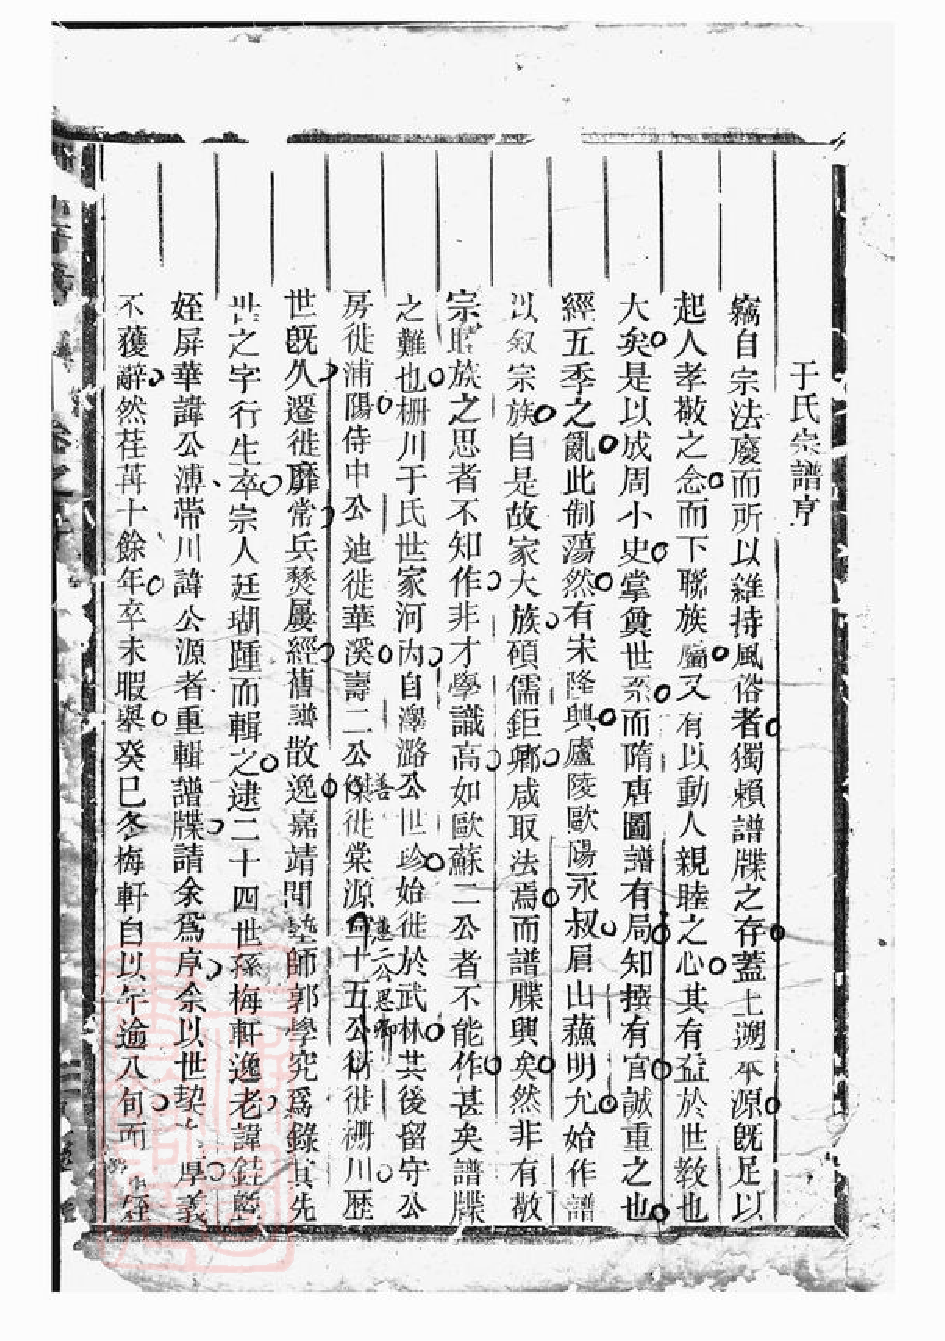 于氏宗譜序
竊自宗法廢而所以維持風俗者獨賴譜牒之存蓋上溯本源旣足以
起人孝敬之念而下聯族屬又有以動人親睦之心其有益於世敎也
大矣是以成周小史掌奠世系而隋唐圖譜有局知撰有官誠重之也
經五季之亂此制蕩然有宋隆興廬陵歐陽永叔眉山蘇明允始作譜
以敘宗族自是故家大族碩儒鉅鄉咸取法焉而譜牒興矣然非有敬
宗聯族之思者不知作非才學識高如歐蘇二公者不能作甚矣譜牒
之難也柵川于氏世家河內自澤潞公世珍始徙於武林其後留守公
房徙浦陽侍中公迪徙華溪壽二公傑徙棠源高十五公衍徙柵川歷
世旣久遷徙靡常兵燹屢經舊譜散逸嘉靖間塾師郭學究爲錄其先
世之字行生卒宗人廷瑚踵而輯之逮二十四世孫梅軒逸老諱銈
姪屏華諱公溥帶川諱公源者重輯譜牒請余爲序余以世契 厚義
不獲辭然荏苒十餘年卒未暇舉癸巳冬梅軒自以年逾八旬而